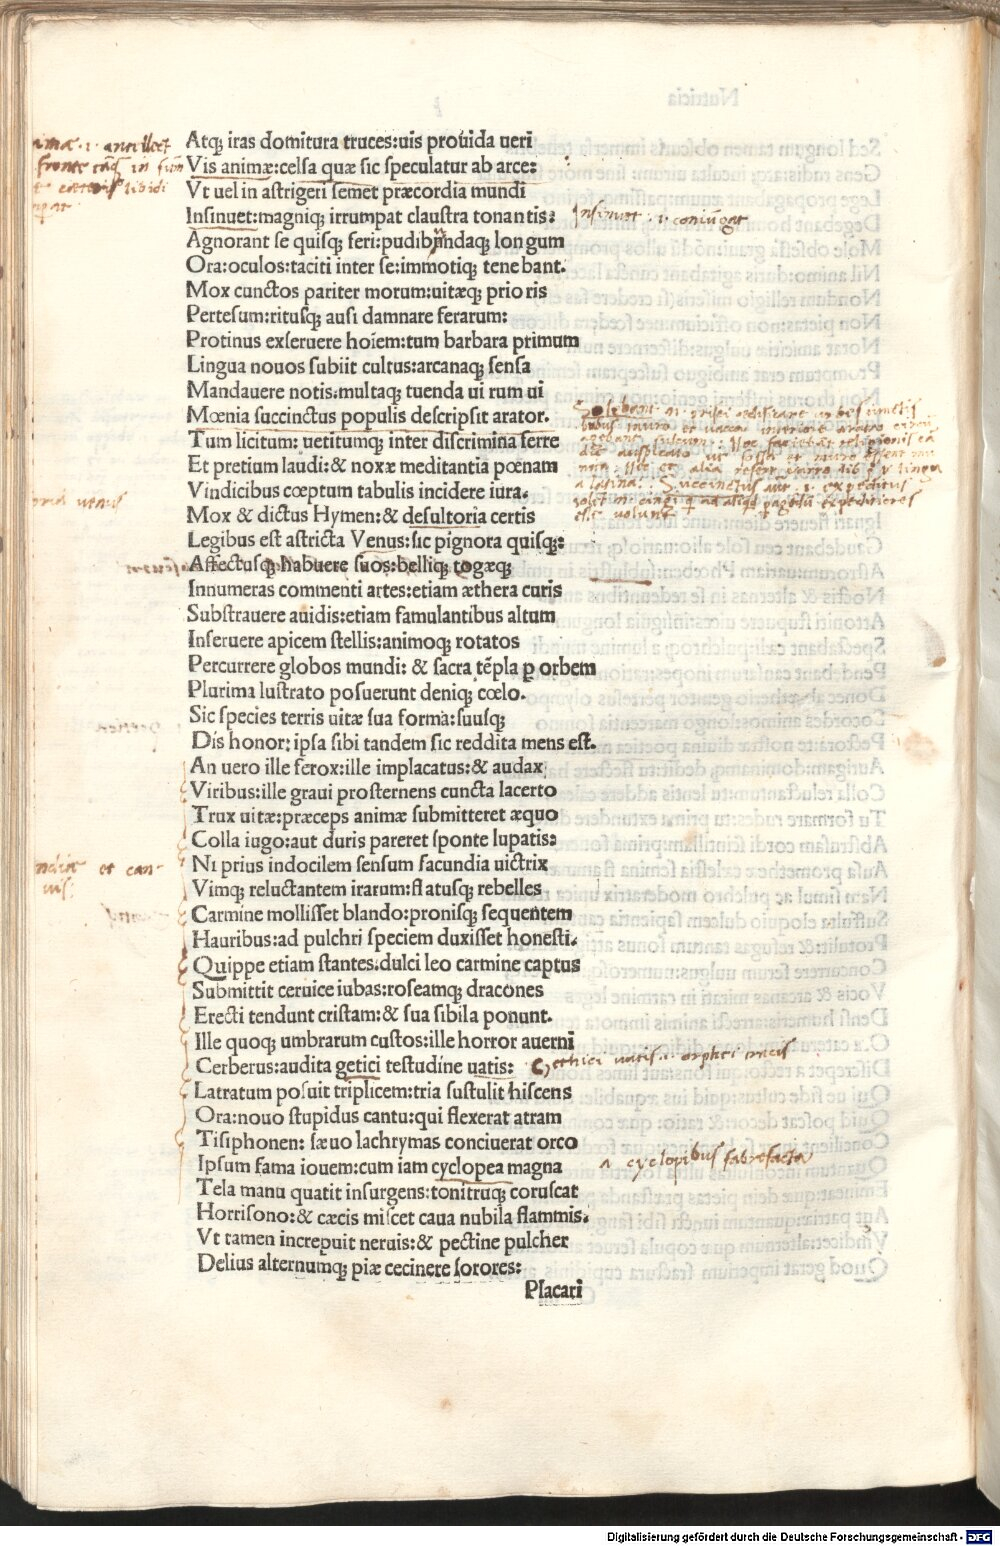 Atq; iras domitura truces:uis prouida ueri
Vis animæ:celsa quæ sic speculatur ab arce:
Vt uel in astrigeri semet præcordia mundi
Insinuet:magniq; irrumpat claustra tonantis:
Insinuet .i. coniungat
Agnorant se quisq; feri:pudibundaq; longum
Ora:oculos:taciti inter se:immotiq; tenebant.
Mox cunctos pariter morum:uitæq; prioris
Pertesum:ritusq; ausi damnare ferarum:
Protinus exseruere hoĩem:tum barbara primum
Lingua nouos subiit cultus:arcanaq; sensa
Mandauere notis:multaq; tuenda ui rum ui
Mœnia succinctus populis descripsit arator.
Tum licitum: uetitumq; inter discrimina ferre
Et pretium laudi:& noxæ meditantia pœnam
Vindicibus cœptum tabulis incidere iura.
Mox & dictus Hymen:& desultoria certis
Legibus est astricta Venus:sic pignora quisq;:
Affectusq; habuere suos:belliq; togæq;
Innumeras commenti artes:etiam æthera curis
Substrauere auidis:etiam famulantibus altum
Inseruere apicem stellis:animoq; rotatos
Percurrere globos mundi: & sacra tẽpla ꝑ orbem
Plurima lustrato posuerunt deniq; cœlo.
Sic species terris uitæ sua forma:suusq;
Dis honor: ipsa sibi tandem sic reddita mens est.
An uero ille ferox:ille implacatus:& audax
Viribus:ille graui prosternens cuncta lacerto
Trux uitæ:præceps animæ submitteret æquo
Colla iugo:aut duris pareret sponte lupatis:
Ni prius indocilem sensum facundia uictrix
Vimq; reluctantem irarum:flatusq; rebelles
Carmine mollisset blando:pronisq; sequentem
Hauribus:ad pulchri speciem duxisset honesti.
Quippe etiam stantes:dulci leo carmine captus
Submittit ceruice iubas:roseamq; dracones
Erecti tendunt cristam:& sua sibila ponunt.
Ille quoq; umbrarum custos:ille horror auerni
Cerberus:audita getici testudine uatis:
Latratum posuit triplicem:tria sustulit hiscens
Ora:nouo stupidus cantu:qui flexerat atram
Tisiphonen: sæuo lachrymas conciuerat orco
Ipsum fama iouem:cum iam cyclopea magna
a cyclopibus fabrefacta
Tela manu quatit insurgens:tonitruq; coruscat
Horrisono:& cæcis miscet caua nubila flammis.
Vt tamen increpuit neruis:& pectine pulcher
Delius alternumq; piæ cecinere sorores:
Placari
Digitalisierung gefördert durch die Deutsche Forschungsgemeinschaft - DFG